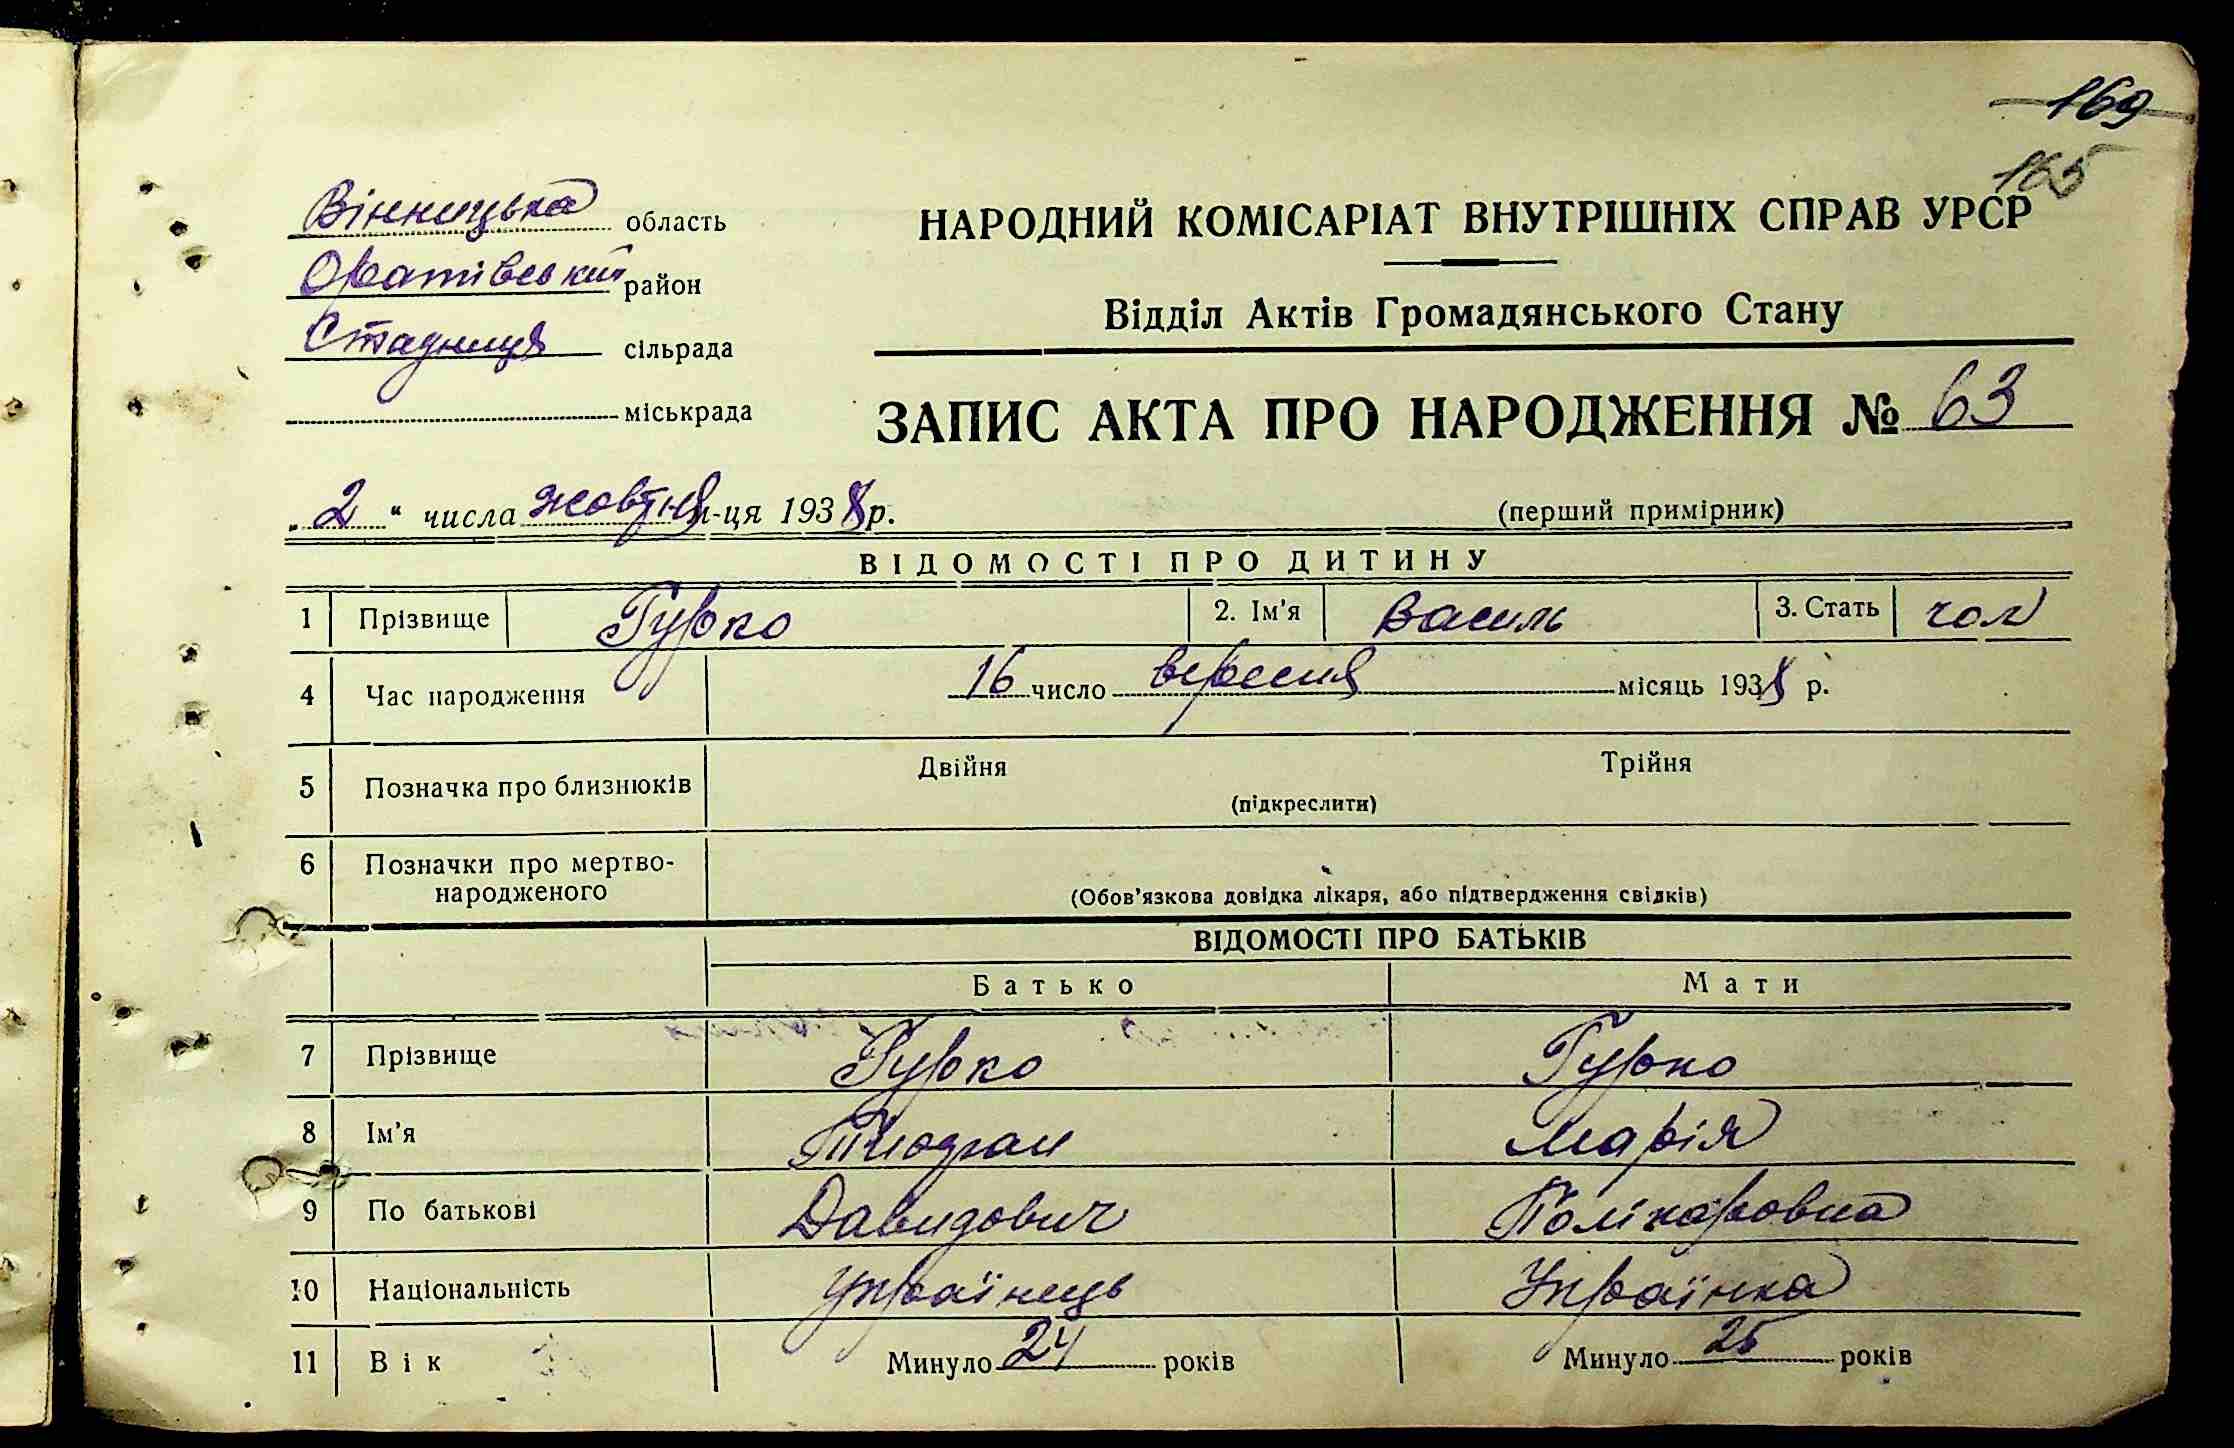 169
165
Вінницька область
Оратівський район
Стадниця сільрада
міськрада
НАРОДНИЙ КОМІСАРІАТ ВНУТРІШНІХ СПРАВ УРСР
Відділ Актів Громадянського Стану
ЗАПИС АКТА ПРО НАРОДЖЕННЯ № 63
„2“ числа жовтня м-ця 1938 р.
(перший примірник)
ВІДОМОСТІ ПРО ДИТИНУ
1 Прізвище Гурко 2. Ім'я Василь 3. Стать чол
4 Час народження 16 число вересня місяць 1938 р.
5 Позначка про близнюків Двійня Трійня
(підкреслити)
6 Позначки про мертво-
народженого
(Обов'язкова довідка лікаря, або підтвердження свідків)
ВІДОМОСТІ ПРО БАТЬКІВ
Батько Мати
7 Прізвище Гурко Гурко
8 Ім'я Марія
9 По батькові Давидович Полікаровна
10 Національність Українець Українка
11 Вік Минуло 24 років Минуло 25 років